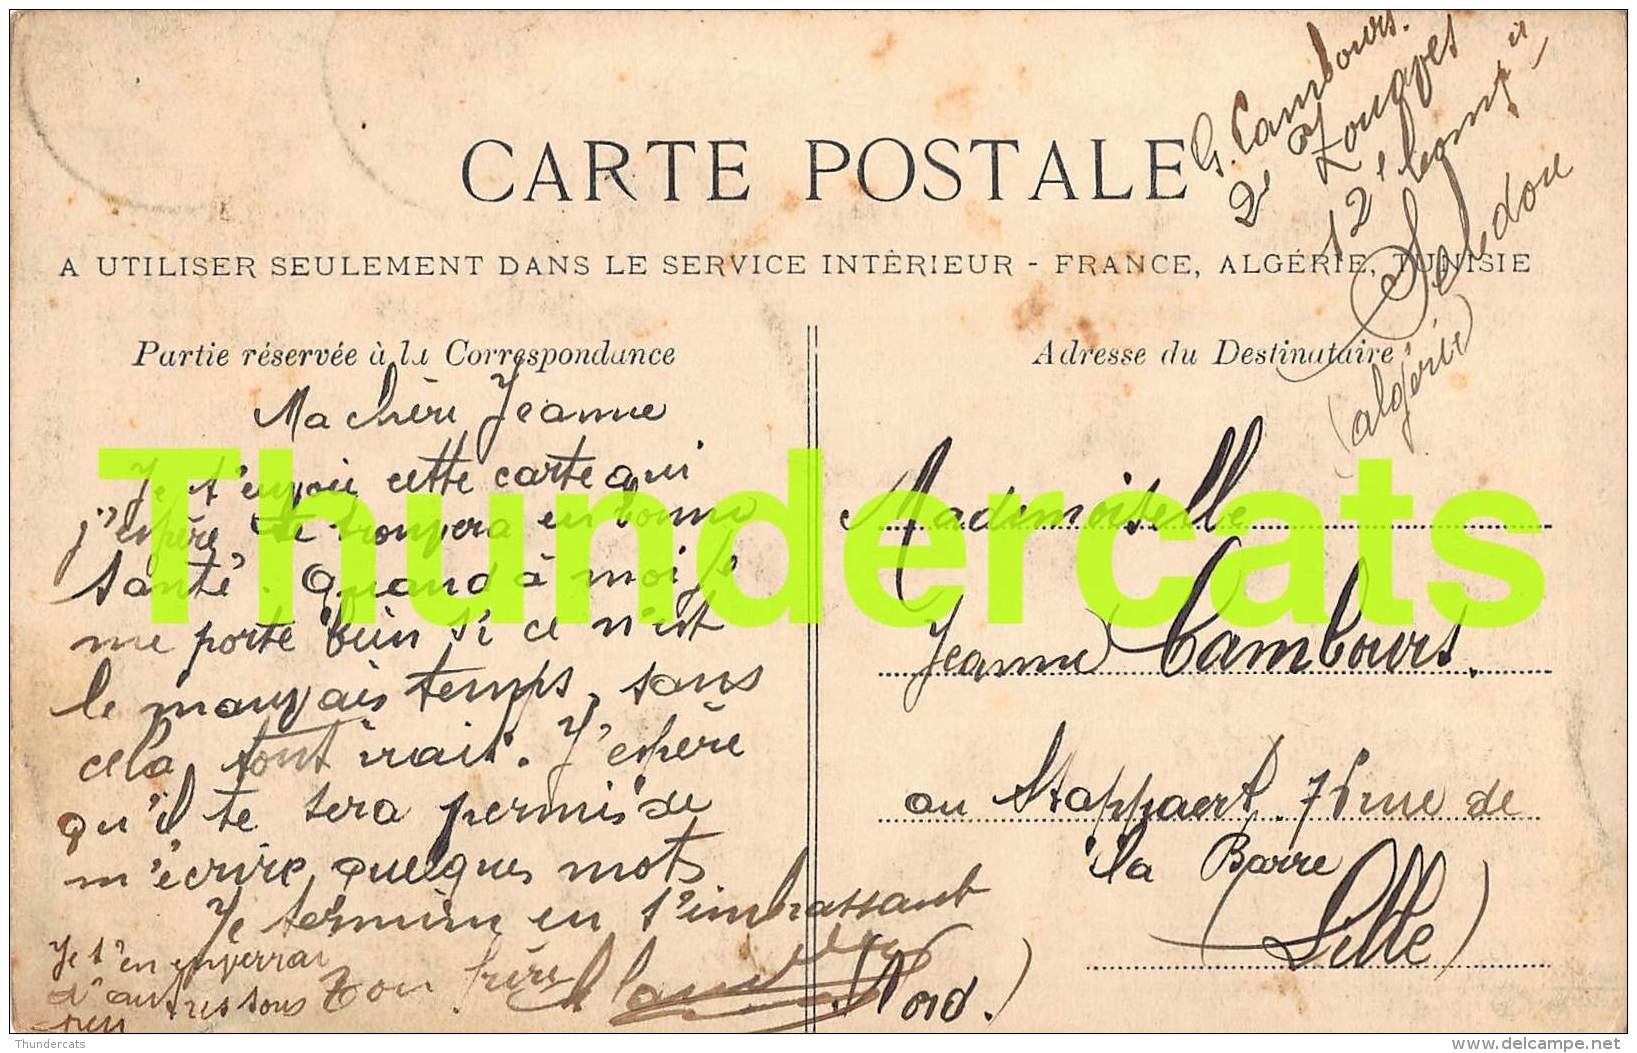 CARTE POSTALE
A UTILISER SEULEMENT DANS LE SERVICE INTÉRIEUR - FRANCE, ALGÉRIE, TUNISIE
G. Cambours.
2e Zouaves
12e
(algérie)
Partie réservée à la Correspondance
Ma chère Jeanne
Je t'envoie cette carte qui
j'espère te trouvera en bonne
santé. Quand à moi je
me porte bien si ce n'est
le mauvais temps, sans
cela tout irait. J'espère
qu'il te sera permis de
m'écrire quelques mots
Je termine en t'embrassant
Ton frère
Je t'en enverrai
d'autres sous
peu
Adresse du Destinataire
Mademoiselle
Jeanne Cambours.
au Stappaert. 76 rue de
la Barre
Lille
(Nord.)
Thundercats
Thundercats
www.delcampe.net